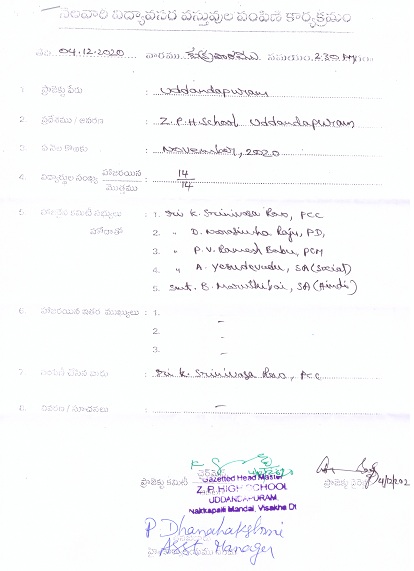 నెలవారి విద్యావసర వస్తువుల పంపిణి కార్యక్రమం
తేది 04.12.2020 వారము శుక్రవారము సమయం 2.30 PM
1. ప్రాజెక్టు పేరు : Uddandapuram
2. ప్రదేశము / ఆవరణ : Z.P.H.School Uddandapuram
3. ఏ నెల కొరకు : November, 2020
4. విద్యార్థుల సంఖ్య హాజరయిన 14
మొత్తము 14
5. కమిటీ సభ్యులు : 1. Sri K. Srinivasa Rao, PCC
హోదాతో 2. " D. Narasimha Raju, PD,
3. " P.V. Ramesh Babu, PCM
4. " A. Yesudevudu, SA (Social)
5. Smt. B. Maruthi bai, SA (Hindi)
6. హాజరయిన ఇతర ముఖ్యులు : 1.
2. –
3. –
7. పంపిణీ చేసిన వారు : Sri K. Srinivasa Rao, PCC
8. వివరణ / సూచనలు : –
ప్రాజెక్టు కమిటీ చైర్మన్
Gazetted Head Master
Z. P. HIGH SCHOOL
UDDANDAPURAM,
Nakkapalli Mandal, Visakha Dt
P Dhanalakshmi
Asst Manager